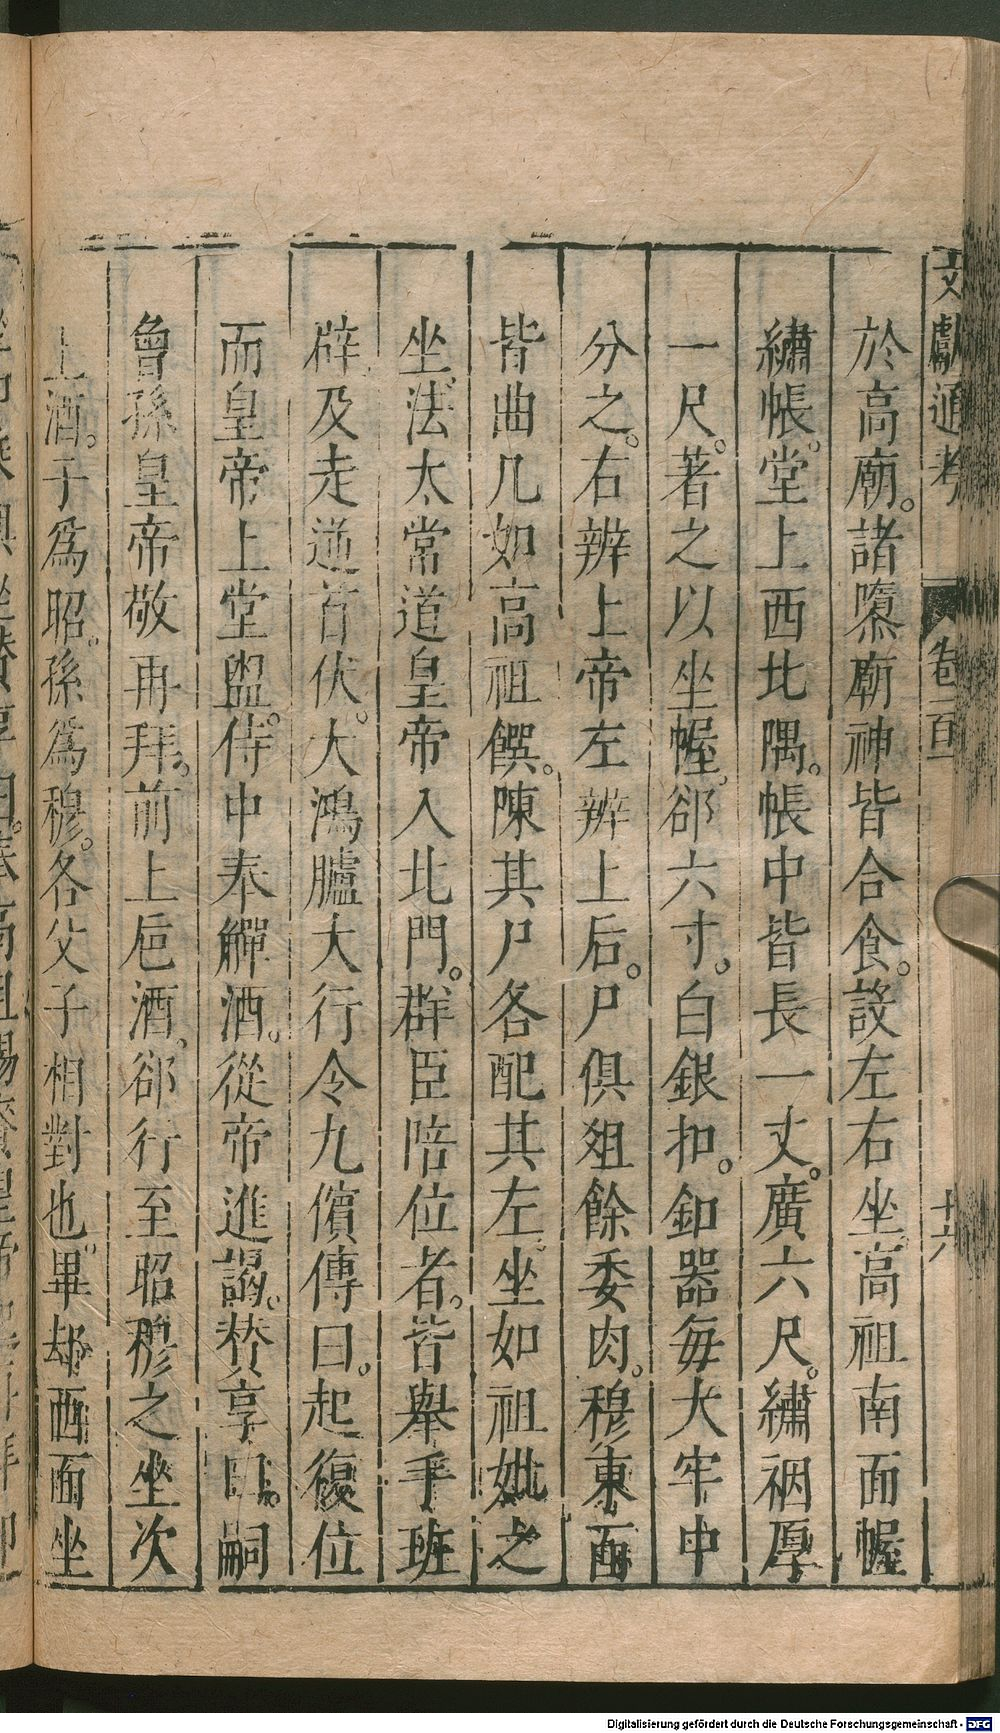 文獻通考 卷一百 十六
於高廟。諸隳廟神皆合食。設左右坐。高祖南面幄
繡帳。堂上西北隅。帳中皆長一丈。廣六尺。繡裀厚
一尺。著之以坐幄。郤六寸。白銀扣。釦器每大牢中
分之。右辨上帝左辨上后。尸俱俎餘委肉。穆東面
皆曲几如高祖饌。陳其尸各配其左。坐如祖妣之
坐法。太常道皇帝入北門。群臣陪位者。皆舉手班
辟及走逆首伏。大鴻臚大行令九儐傳曰。起復位
而皇帝上堂盥。侍中奉觶酒。從帝進謁。贊享曰。嗣
曾孫皇帝敬再拜。前上巵酒。郤行至昭穆之坐次
上酒。子爲昭。孫爲穆。各父子相對也。畢却西面坐
Digitalisierung gefördert durch die Deutsche Forschungsgemeinschaft - DFG